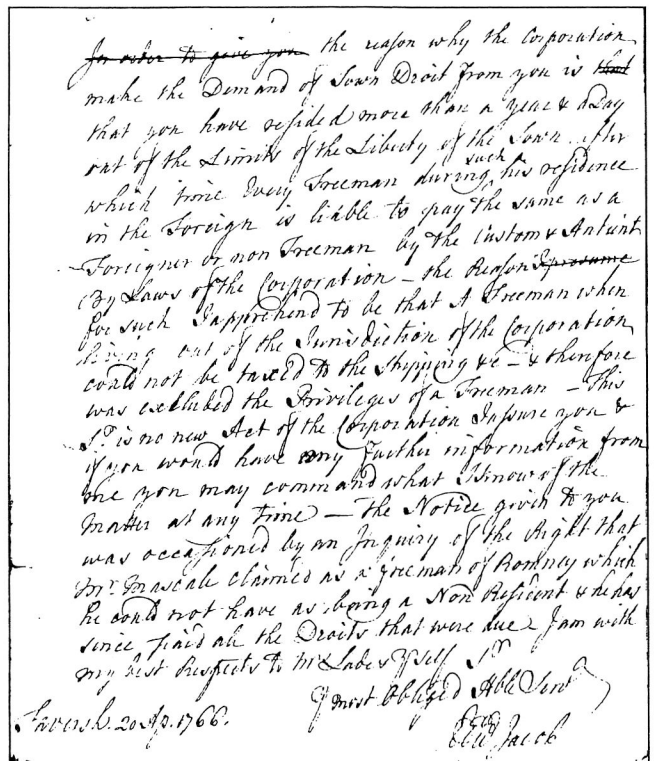 In order to give you the reason why the Corporation
make the Demand of Town Droit from you is that
that you have resided more than a Year & a Day
out of the Limits of the Liberty of the Town after
such
which time Every Freeman during his residence
in the Foreign is liable to pay the same as a
Foreigner or non Freeman by the Custom & Antient
By Laws of the Corporation – the Reason I presume
for such I apprehend to be that A Freeman when
living out of the Jurisdiction of the Corporation
could not be taxed to the Shipping &c – & therefore
was excluded the Privileges of a Freeman – This
Sr. is no new Act of the Corporation I assure you &
if you would have any Further information from
me you may command what I know of the
Matter at any time – the Notice given to you
was occasioned by an Inquiry of the Right that
Mr. Mascall claimed as a freeman of Romney which
he could not have as being a Non Resident & he has
since paid all the Droits that were due I am with
my best Respects to Mrs Lades & Yself Sr
Yr most Obliged Hble Servt
Edwd Jacob
Faversh. 20 Ap. 1766.